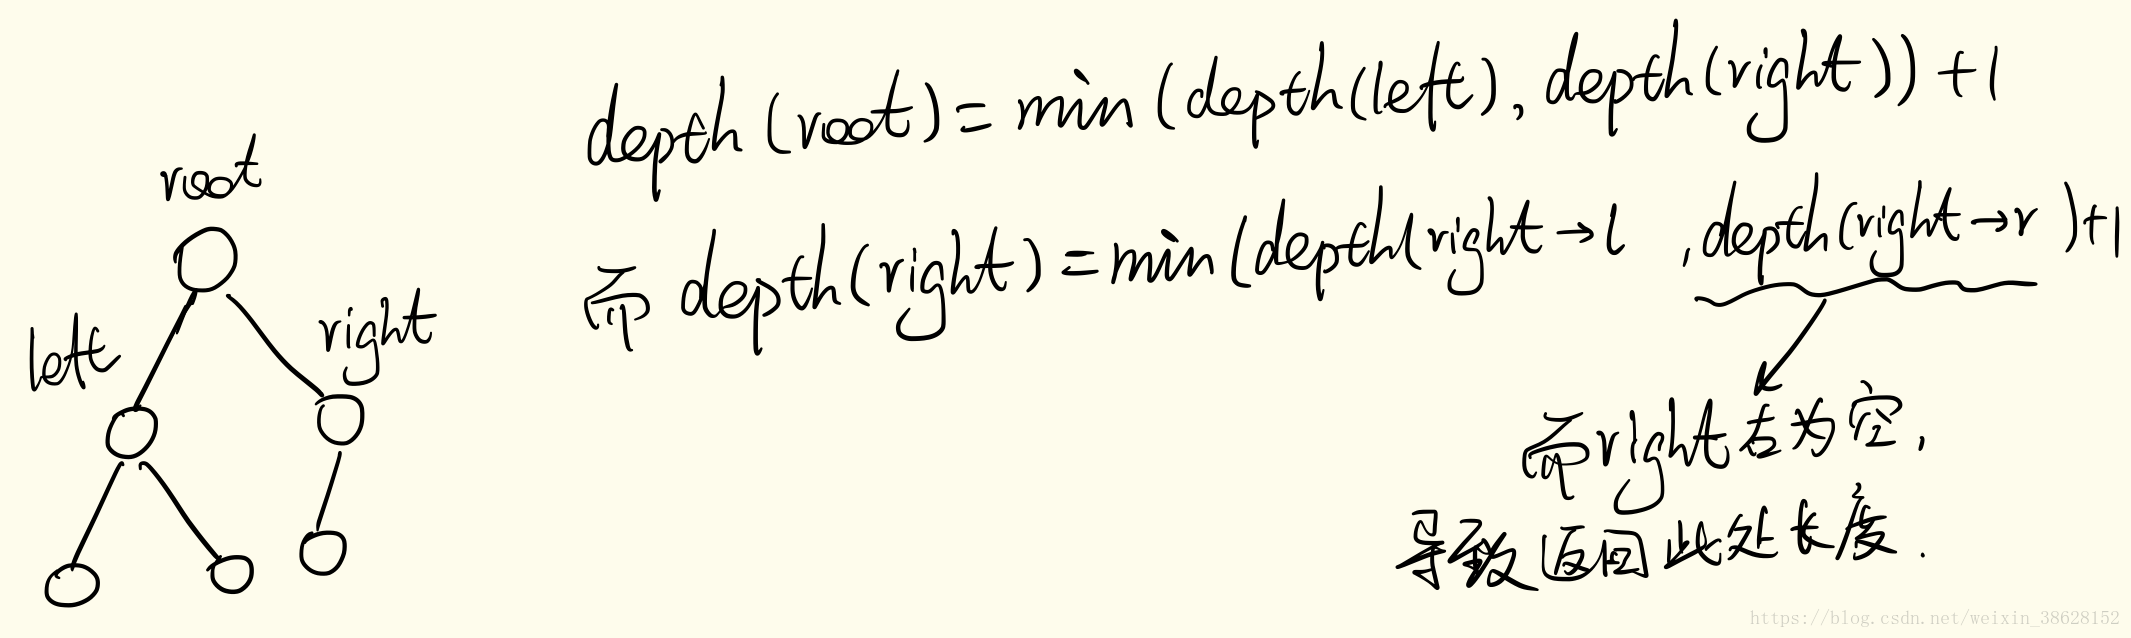 depth(root)=min(depth(left),depth(right))+1
root
而depth(right)=min(depth(right→l ,depth(right→r )+1
left
right
而right右为空,
导致返回此处长度.
https://blog.csdn.net/weixin_38628152